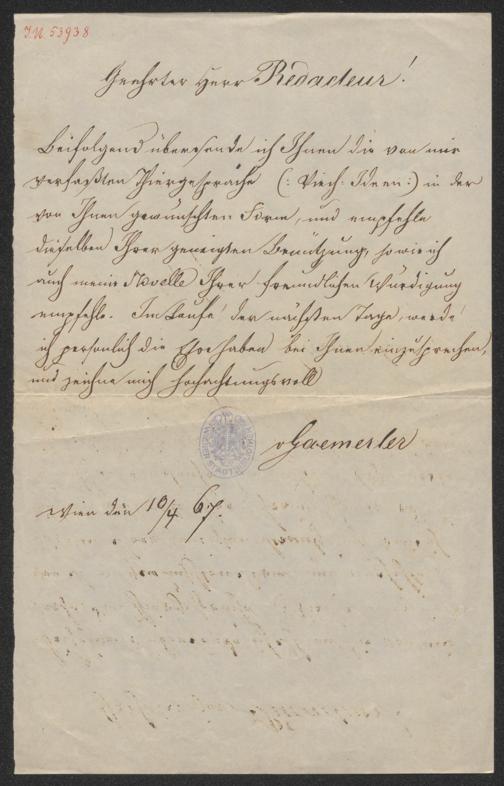 I.N. 53938
Geehrter Herr Redacteur!
Beifolgend übersende ich Ihnen die von mir
verfaßten Thiergespräche (: Viech-Ideen :) in der
von Ihnen gewünschten Form, und empfehle
dieselben Ihrer geneigten Benützung, sowie ich
auch meine Novelle Ihrer freundlichen Würdigung
empfehle. Im Laufe der nächsten Tage, werde
ich persönlich die Ehre haben bei Ihnen einzusprechen,
und zeichne mich hochachtungsvoll
vGaemerler
Wien den 10/4 67.